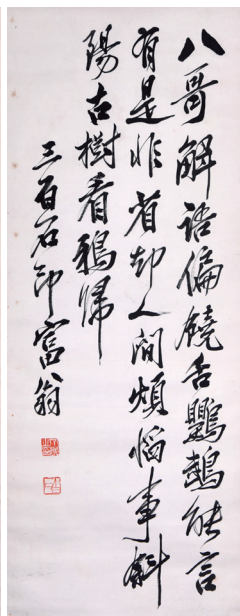 八哥解語偏饒舌鸚鵡能言
有是非省却人間煩惱事斜
陽古樹看鴉歸
三百石印富翁